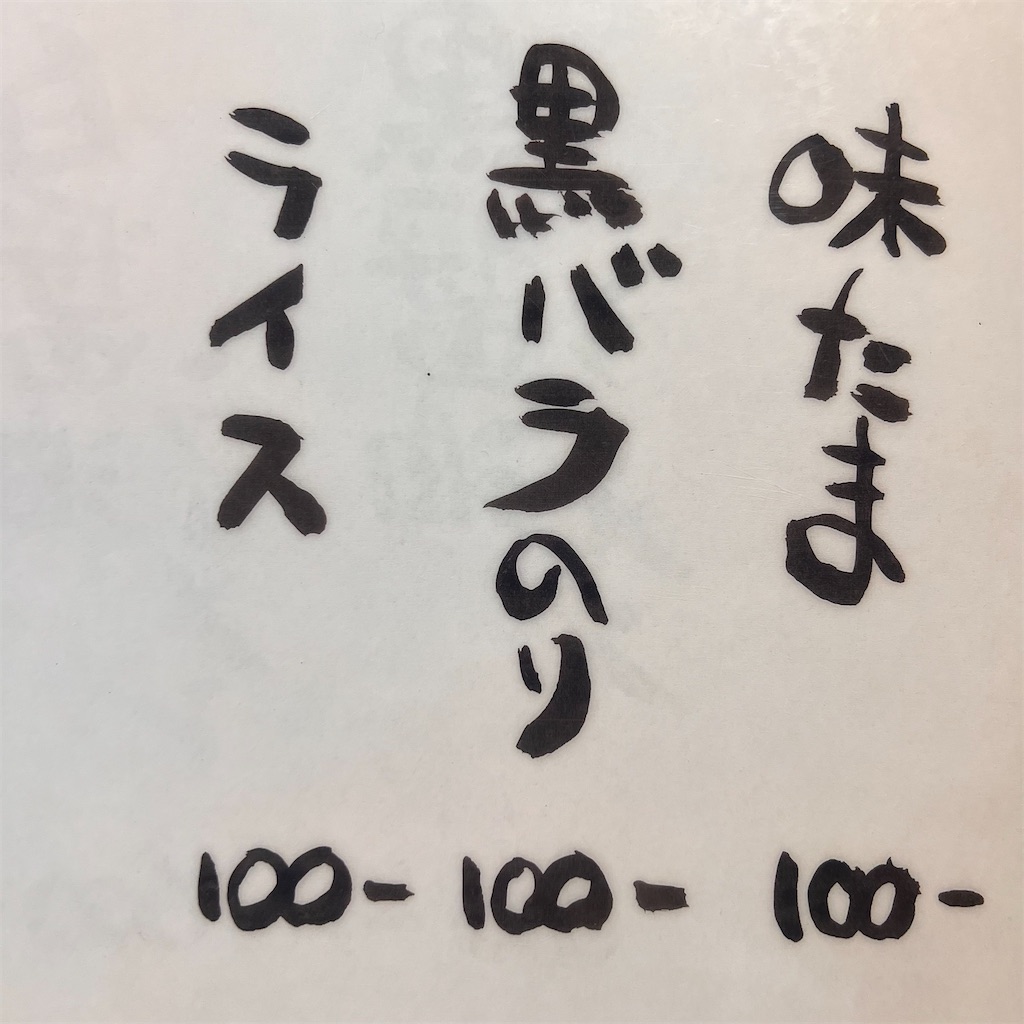 味たま
100-
黒バラのり
100-
ライス
100-